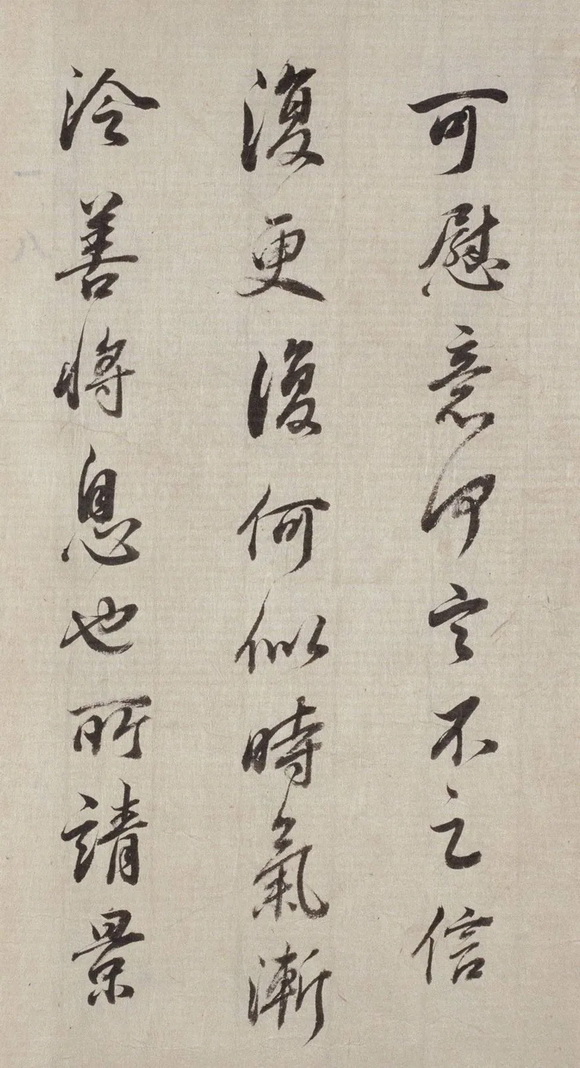 可慰意不之信
復更復何似時氣漸
冷善將息也所請景